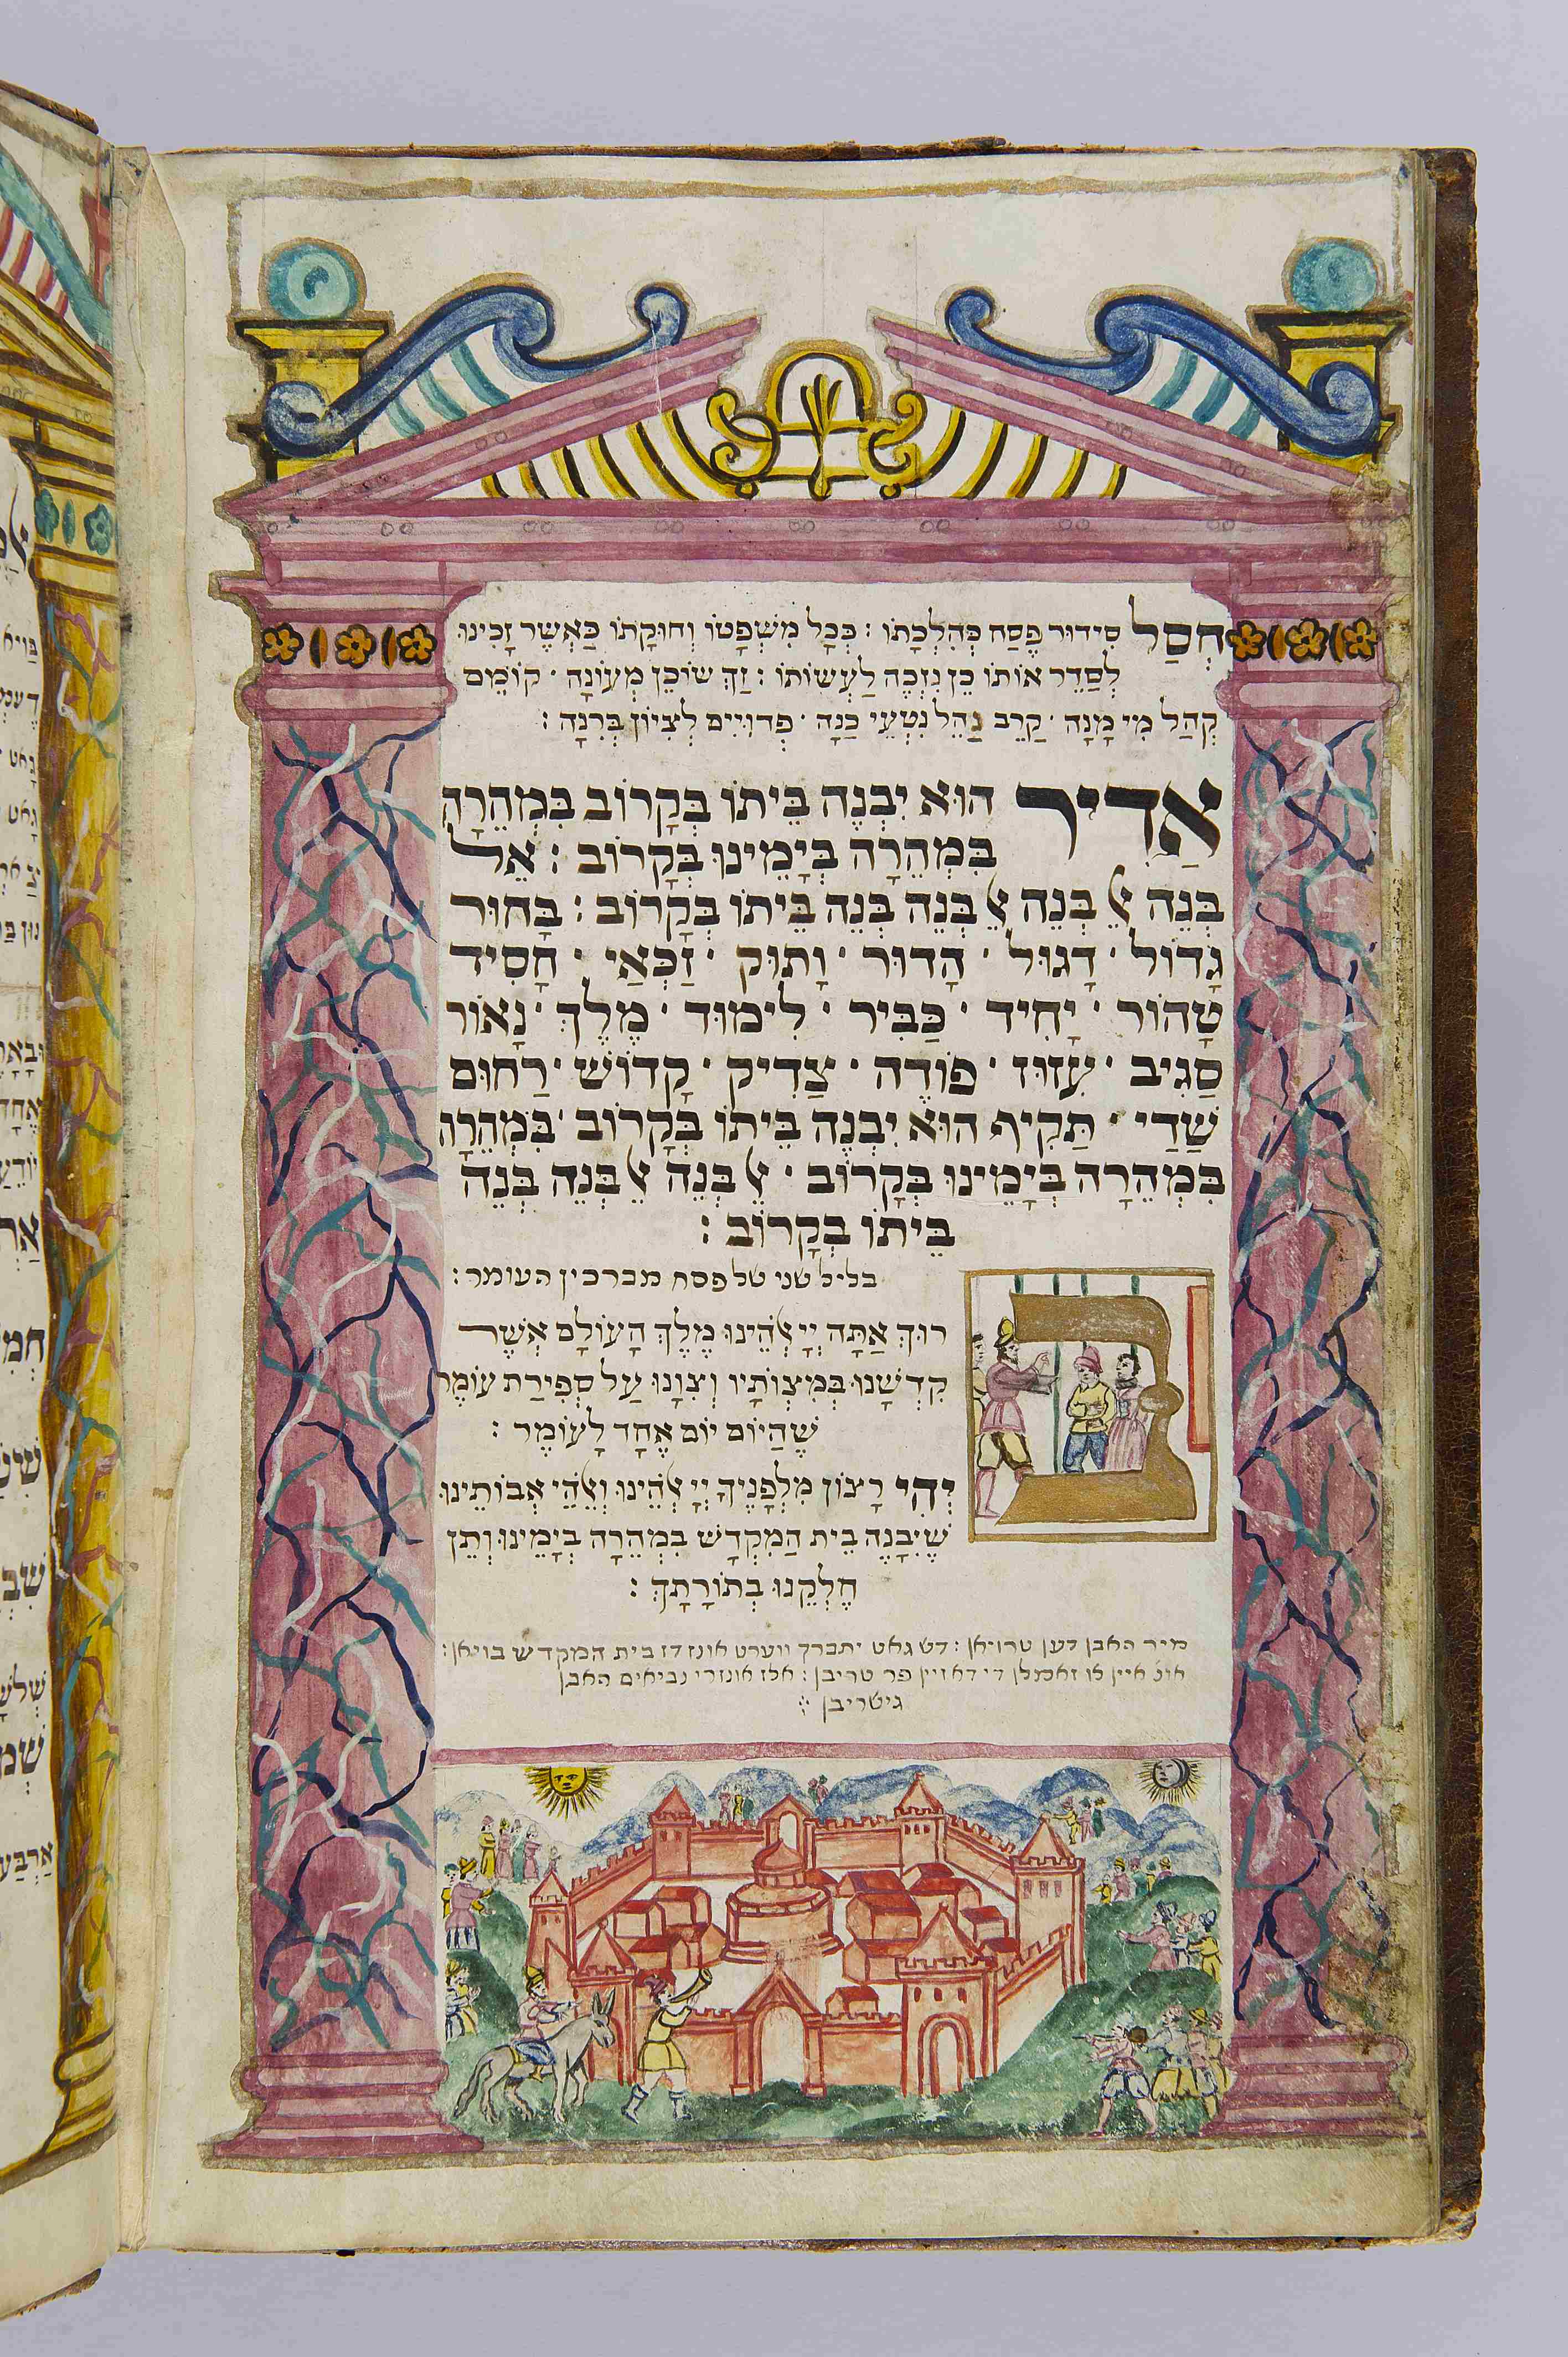 חֲסַל סִידוּר פֶּסַח כְּהִלְכָתוֹ : כְּכָל מִשְׁפָּטוֹ וְחוּקָתוֹ כַּאֲשֶׁר זָכִינוּ
לְסַדֵּר אוֹתוֹ כֵּן נִזְכֶּה לַעֲשׂוֹתוֹ : זַךְ שׁוֹכֵן מְעוֹנָה · קוֹמֵם
קְהַל מִי מָנָה · קָרֵב נַהֵל נִטְעֵי כַנָּה · פְּדוּיִים לְצִיּוֹן בְּרִנָּה :
אַדִיר הוּא יִבְנֶה בֵּיתוֹ בְּקָרוֹב בִּמְהֵרָה
בִּמְהֵרָה בְּיָמֵינוּ בְּקָרוֹב : אֵל
בְּנֵה אֵל בְּנֵה אֵל בְּנֵה בְּנֵה בֵּיתוֹ בְּקָרוֹב : בָּחוּר
גָדוֹל · דָגוּל · הָדוּר · וָתוּק · זַכְּאַי · חָסִיד
טָהוֹר · יָחִיד · כַּבִּיר · לִימוּד · מֶלֶךְ · נָאוֹר
סַגִיב · עִזוּז · פּוֹדֶה · צַדִיק · קָדוֹשׁ · רַחוּם
שַׁדַי · תַּקִיף הוּא יִבְנֶה בֵּיתוֹ בְּקָרוֹב · בִּמְהֵרָה
בִּמְהֵרָה בְּיָמֵינוּ בְּקָרוֹב · אֵל בְּנֵה אֵל בְּנֵה בְּנֵה
בֵּיתוֹ בְּקָרוֹב :
בליל שני של פסח מברכין העומר :
בָּרוּךְ אַתָּה יְיָ אֱלֹהֵינוּ מֶלֶךְ הָעוֹלָם אֲשֶׁר
קִדְשָׁנוּ בְּמִצְוֹתָיו וְצִוָנוּ עַל סְפִירַת עוֹמֶר
שֶׁהַיוֹם יוֹם אֶחָד לָעוֹמֶר :
יְהִי רָצוֹן מִלְפָנֶיךָ יְיָ אֱלֹהֵינוּ וֶאֱלֹהֵי אֲבוֹתֵינוּ
שֶׁיִבָּנֶה בֵּית הַמִקְדָשׁ בִּמְהֵרָה בְּיָמֵינוּ וְתֵן
חֶלְקֵנוּ בְּתוֹרָתָךְ :
מיר האבן דען טרויאן : דש גאט יתברך ווערט אונז דז בית המקדש בויאן :
אונ איין צו זאמלן די דאזיין פר טריבן : אלז אונזרי נביאים האבן
גישריבן :